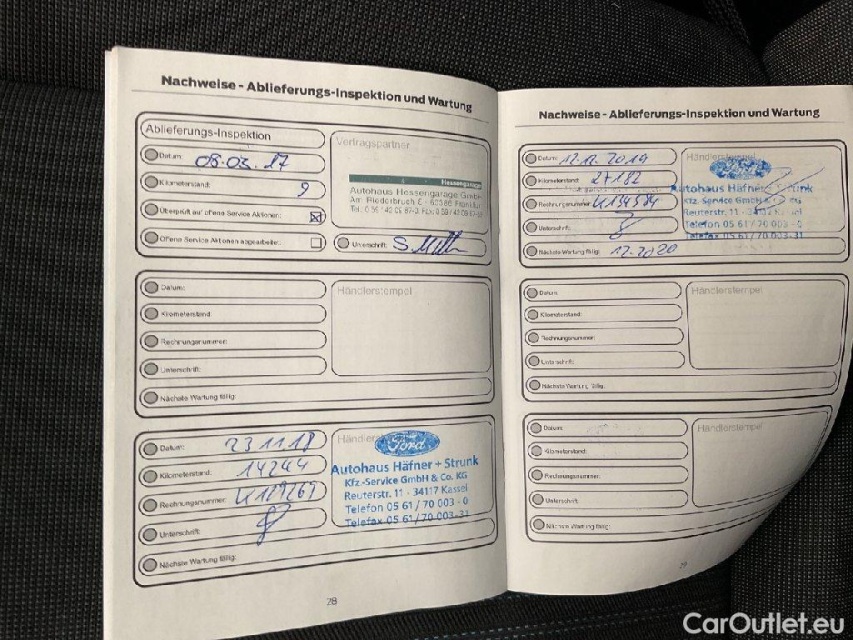 Nachweise - Ablieferungs-Inspektion und Wartung
Ablieferungs-Inspektion
Datum: 08.03.17
Kilometerstand: 9
Überprüft auf offene Service Aktionen:
Offene Service Aktionen abgearbeitet:
Vertragspartner
Hessengarage
Autohaus Hessengarage GmbH
Am Riederbruch
Unterschrift:
Datum:
Kilometerstand:
Rechnungsnummer:
Unterschrift:
Nächste Wartung fällig:
Händlerstempel
Datum: 23.11.18
Kilometerstand: 14244
Rechnungsnummer:
Unterschrift:
Nächste Wartung fällig:
Ford
Autohaus Häfner + Strunk
Kfz.-Service GmbH & Co. KG
Reuterstr. 11 - 34117 Kassel
Telefon 05 61 / 70 003 - 0
Telefax 05 61 / 70 003-31
28
Nachweise - Ablieferungs-Inspektion und Wartung
Datum: 12.12.2019
Kilometerstand: 27182
Rechnungsnummer:
Unterschrift:
Nächste Wartung fällig: 12.2020
Autohaus Häfner + Strunk
Kfz.-Service GmbH
Reuterstr. 11 -
Telefon 05 61 / 70 003 - 0
Telefax 05 61 / 70 003-31
Datum:
Kilometerstand:
Rechnungsnummer:
Unterschrift:
Nächste Wartung fällig:
Händlerstempel
Datum:
Kilometerstand:
Rechnungsnummer:
Unterschrift:
Nächste Wartung fällig:
Händlerstempel
29
CarOutlet.eu